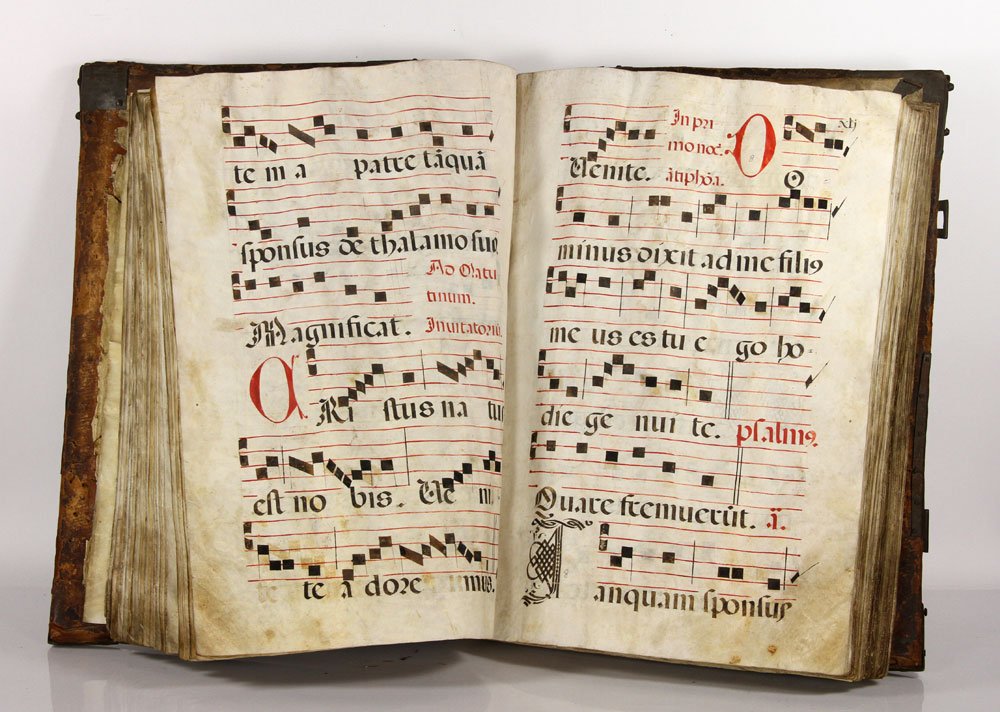 te m a patre tãquã
sponsus de thalamo suo
Ad Matu
tinum.
Magnificat. Invitatoriũ.
CRi stus na tus
est no bis. Ve ni
te a dore mus.
In pri
mo noc̃.
Venite. ãtiphõa. DO
minus dixit ad me filiꝰ
me us es tu e go ho-
die ge nui te. psalmꝰ.
Quare fremuerũt. ã.
Tanquam sponsus